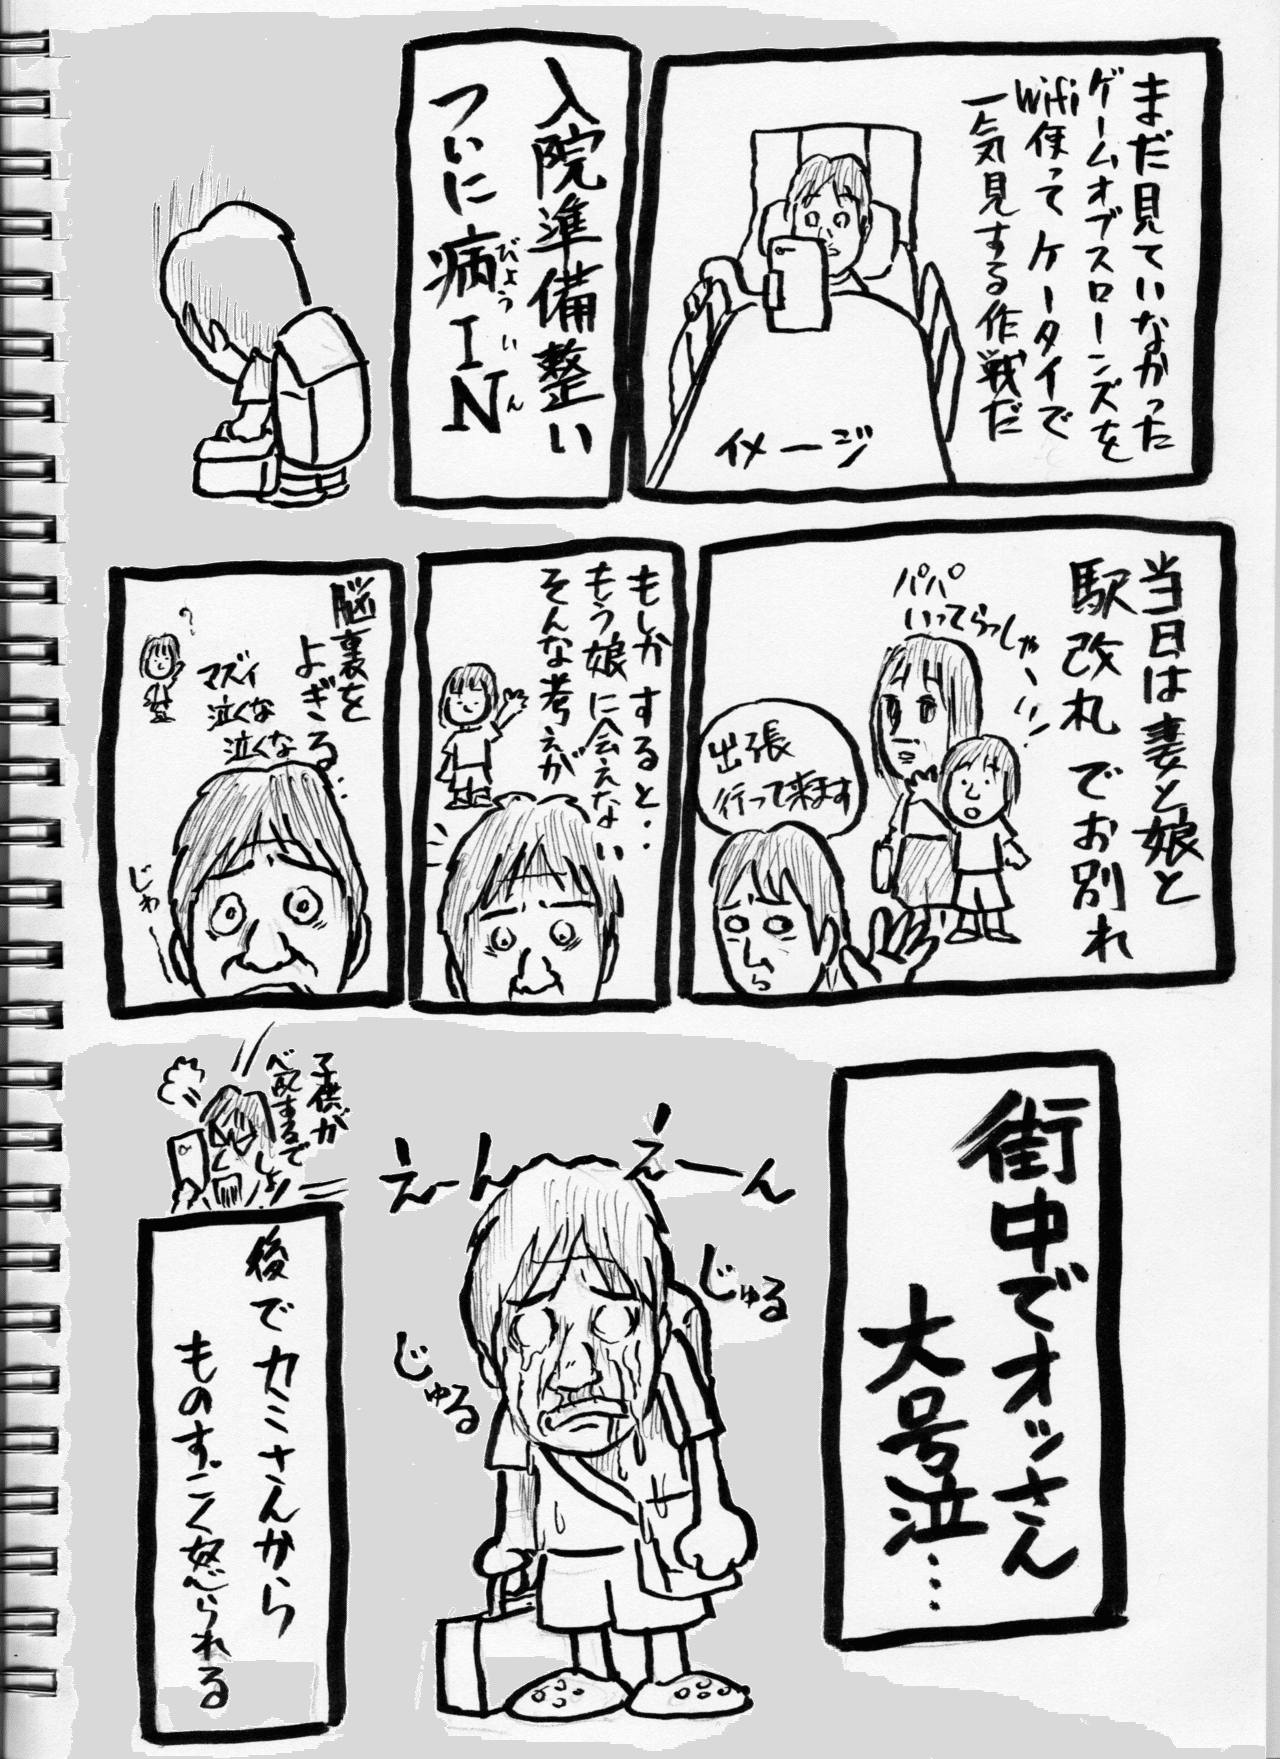 まだ見ていなかった
ゲームオブスローンズを
Wifi使ってケータイで
一気見する作戦だ
イメージ
入院準備整い
ついに病IN
びょういん
当日は妻と娘と
駅改札でお別れ
パパ
いってらっしゃーい
出張
行って来ます
もしかすると・・
もう娘に会えない
そんな考えが
脳裏を
よぎる…
?
マズイ
泣くな
泣くな
じわー
街中でオッさん
大号泣…
えーん
えーん
じゅる
じゅる
子供が
するでしょ!
後でカミさんから
ものすごく怒られる